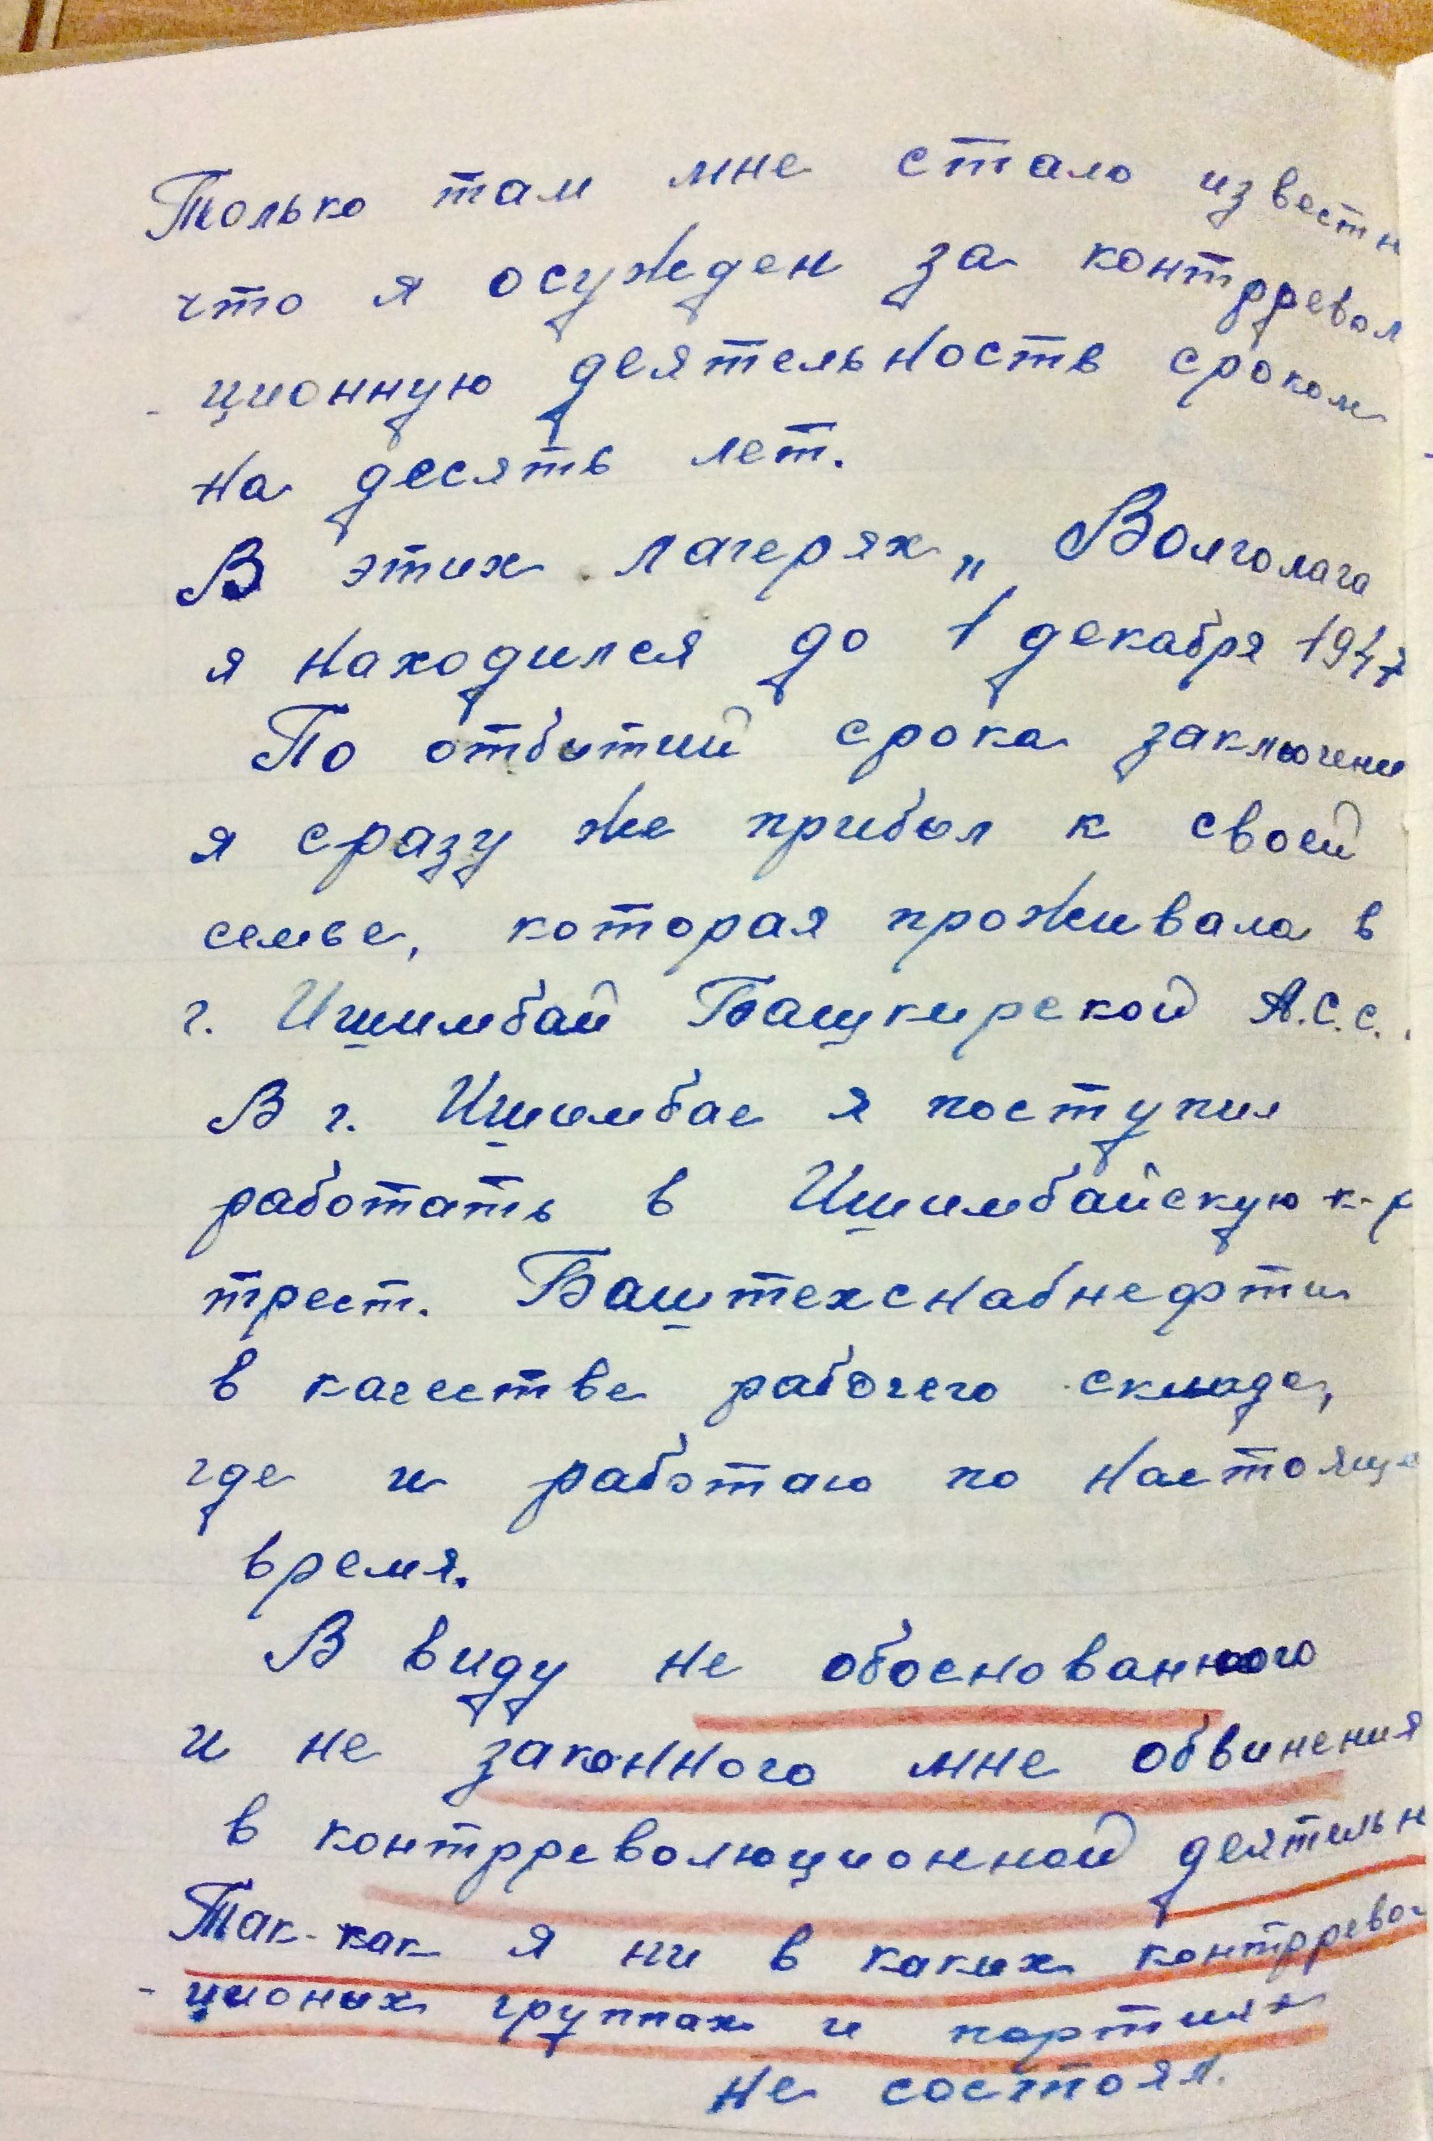 Только там мне стало известн
что я осужден за контрревол
- ционную деятельность сроком
на десять лет.
В этих лагерях „ Волголага
я находился до 1 декабря 1947
По отбытий срока заключени
я сразу же прибыл к своей
семье, которая проживала в
г. Ишимбай Башкирской А.С.С.
В г. Ишимбае я поступил
работать в Ишимбайскую к-р
трест. Баштехснабнефти
в качестве рабочего склада,
где и работаю по настояще
время.
В виду не обоснованного
и не законного мне обвинения
в контрреволюционной деятельн
Так-как я ни в каких контррево
- ционых группах и партиях
не состоял.